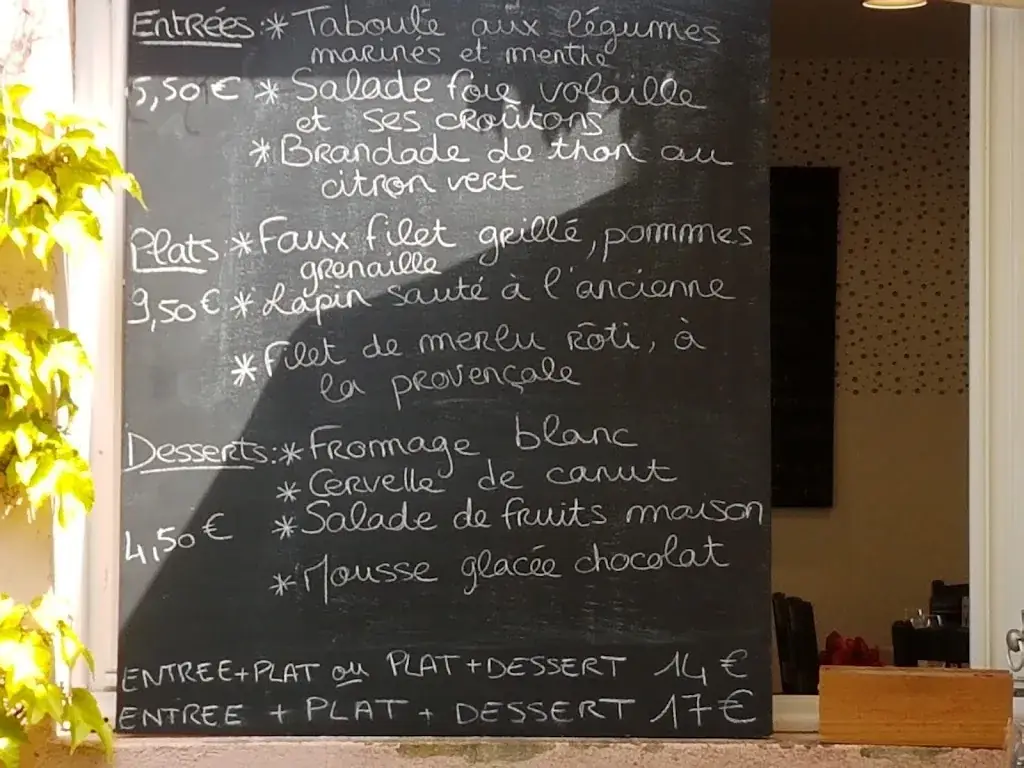 Entrées : * Taboulé aux légumes
marinés et menthe
5,50 € * Salade foie volaille
et ses croûtons
* Brandade de thon au
citron vert
Plats : * Faux filet grillé, pommes
grenaille
9,50 € * Lapin sauté à l'ancienne
* Filet de merlu rôti, à
la provençale
Desserts : * Fromage blanc
* Cervelle de canut
4,50 € * Salade de fruits maison
* Mousse glacée chocolat
ENTREE + PLAT ou PLAT + DESSERT 14 €
ENTREE + PLAT + DESSERT 17 €